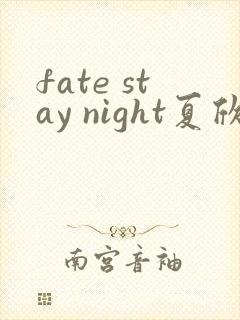 fate st
ay night夏欣
南宫音袖